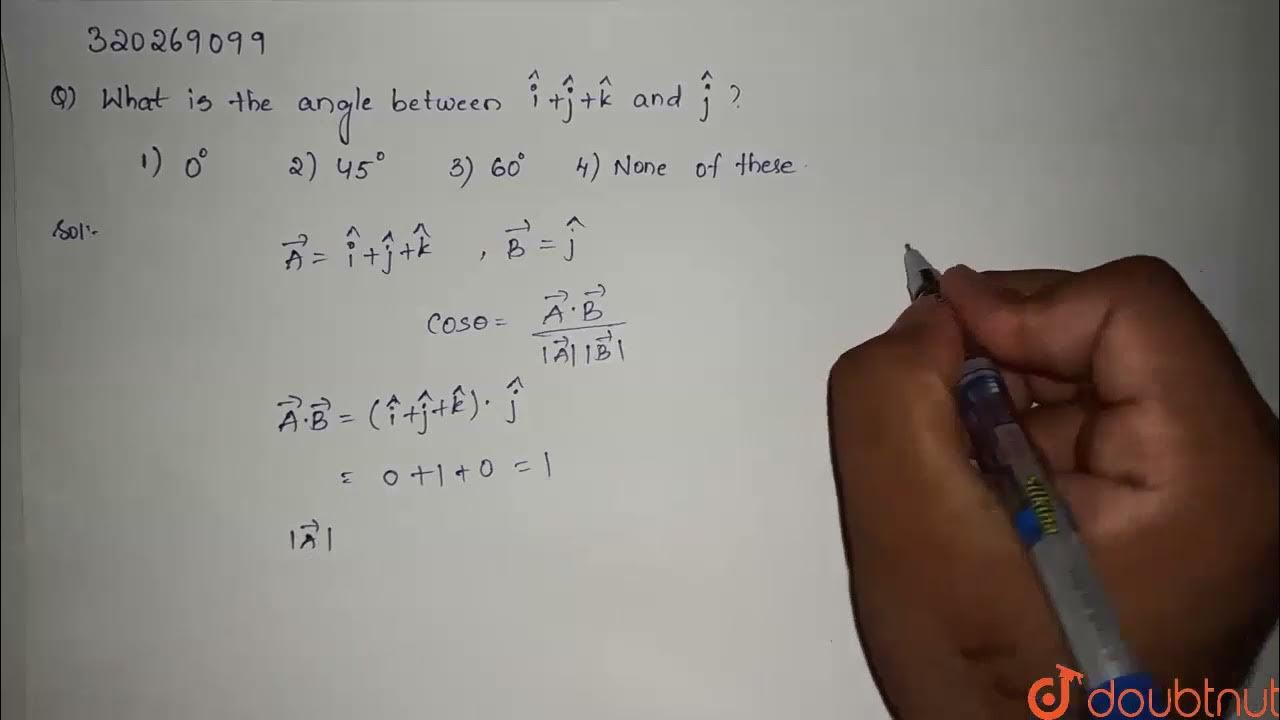 320269099
Q) What is the angle between î+ĵ+k̂ and ĵ ?
1) 0° 2) 45° 3) 60° 4) None of these.
Sol:-
A⃗ = î+ĵ+k̂ , B⃗ = ĵ
cosθ = A⃗·B⃗ / |A⃗| |B⃗|
A⃗·B⃗ = (î+ĵ+k̂)· ĵ
= 0+1+0 = 1
|A⃗|
doubtnut